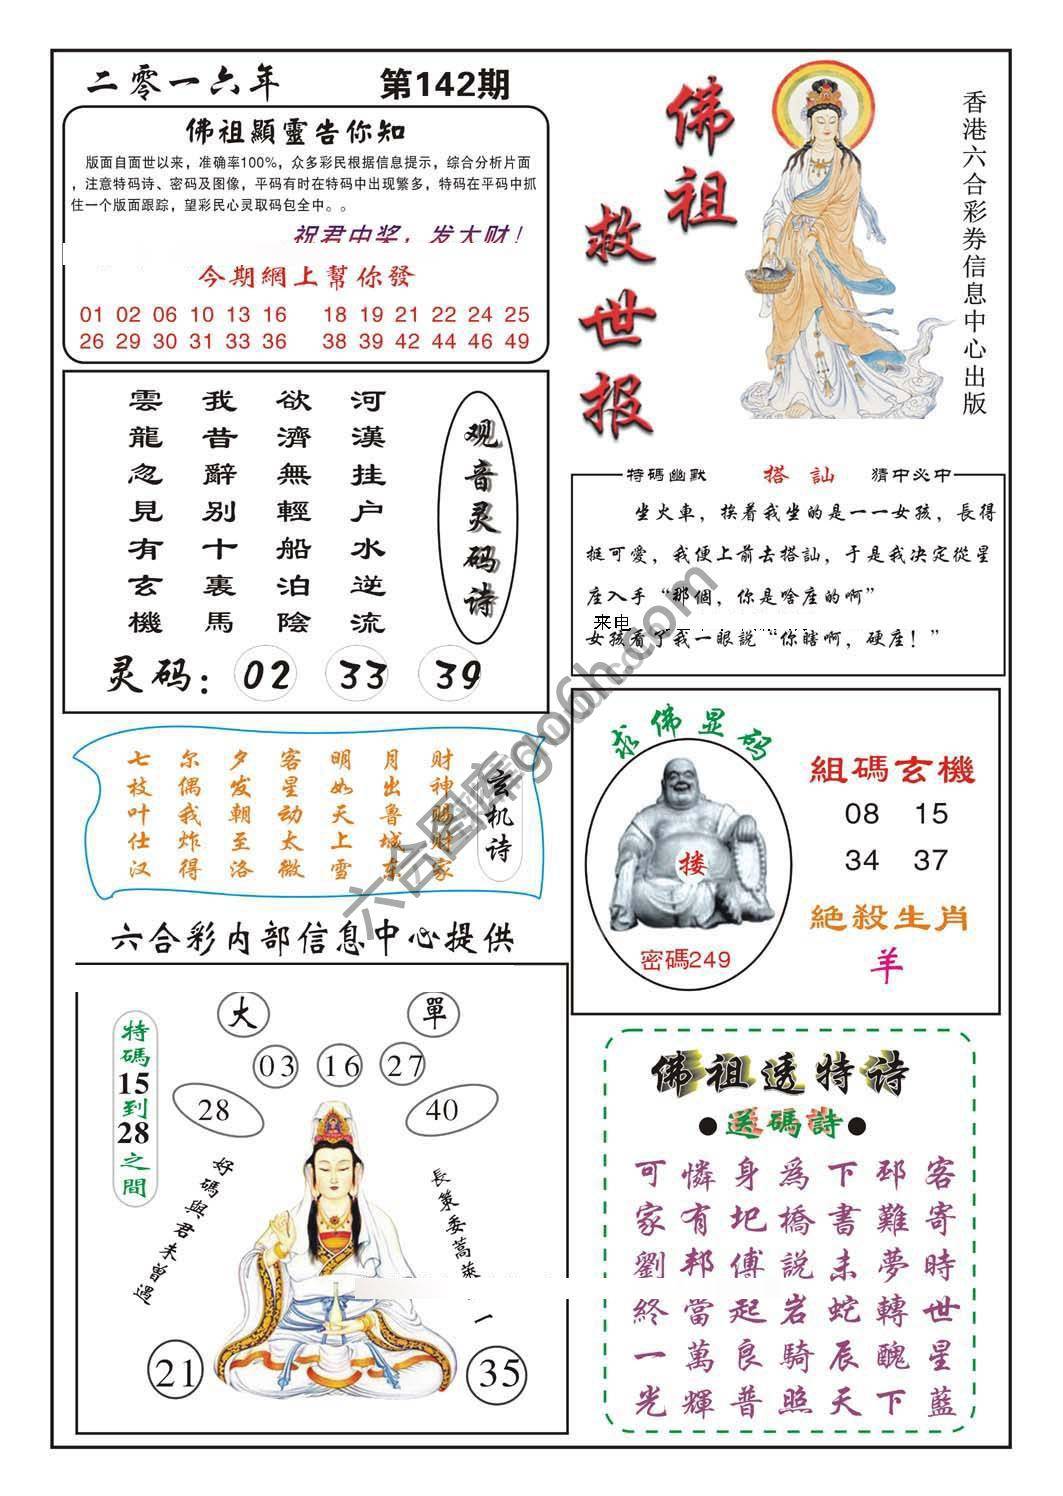 二零一六年 第142期
佛祖顯靈告你知
版面自面世以来，准确率100%，众多彩民根据信息提示，综合分析片面
，注意特码诗、密码及图像，平码有时在特码中出现繁多，特码在平码中抓
住一个版面跟踪，望彩民心灵取码包全中。。
祝君中奖，发大财！
今期網上幫你發
01 02 06 10 13 16 18 19 21 22 24 25
26 29 30 31 33 36 38 39 42 44 46 49
佛祖
救世报
香港六合彩券信息中心出版
观音灵码诗
河漢挂户水逆流
欲濟無輕船泊陰
我昔辭别十裏馬
雲龍忽見有玄機
灵码：02 33 39
特碼幽默 搭訕 猜中必中
坐火車，挨着我坐的是一一女孩，長得
挺可愛，我便上前去搭訕，于是我决定從星
座入手“那個，你是啥座的啊”
来电
女孩看了我一眼説“你瞎啊，硬座！”
玄机诗
财神赐财家
月出鲁城东
明如天上雪
客星动太微
夕发朝至洛
尔偶我炸得
七枝叶仕汉
求佛显码
搂
密碼249
組碼玄機
08 15
34 37
絶殺生肖
羊
六合彩内部信息中心提供
大 單
03 16 27
28 40
特碼15到28之間
好碼與君未曾遇
長策委蒿萊
一
21 35
佛祖透特诗
●送碼詩●
客寄時世星藍
邳難夢轉醜下
下書未蛇辰天
爲橋説岩騎照
身圯傅起良普
憐有邦當萬輝
可家劉終一光
六合图库go6h.com